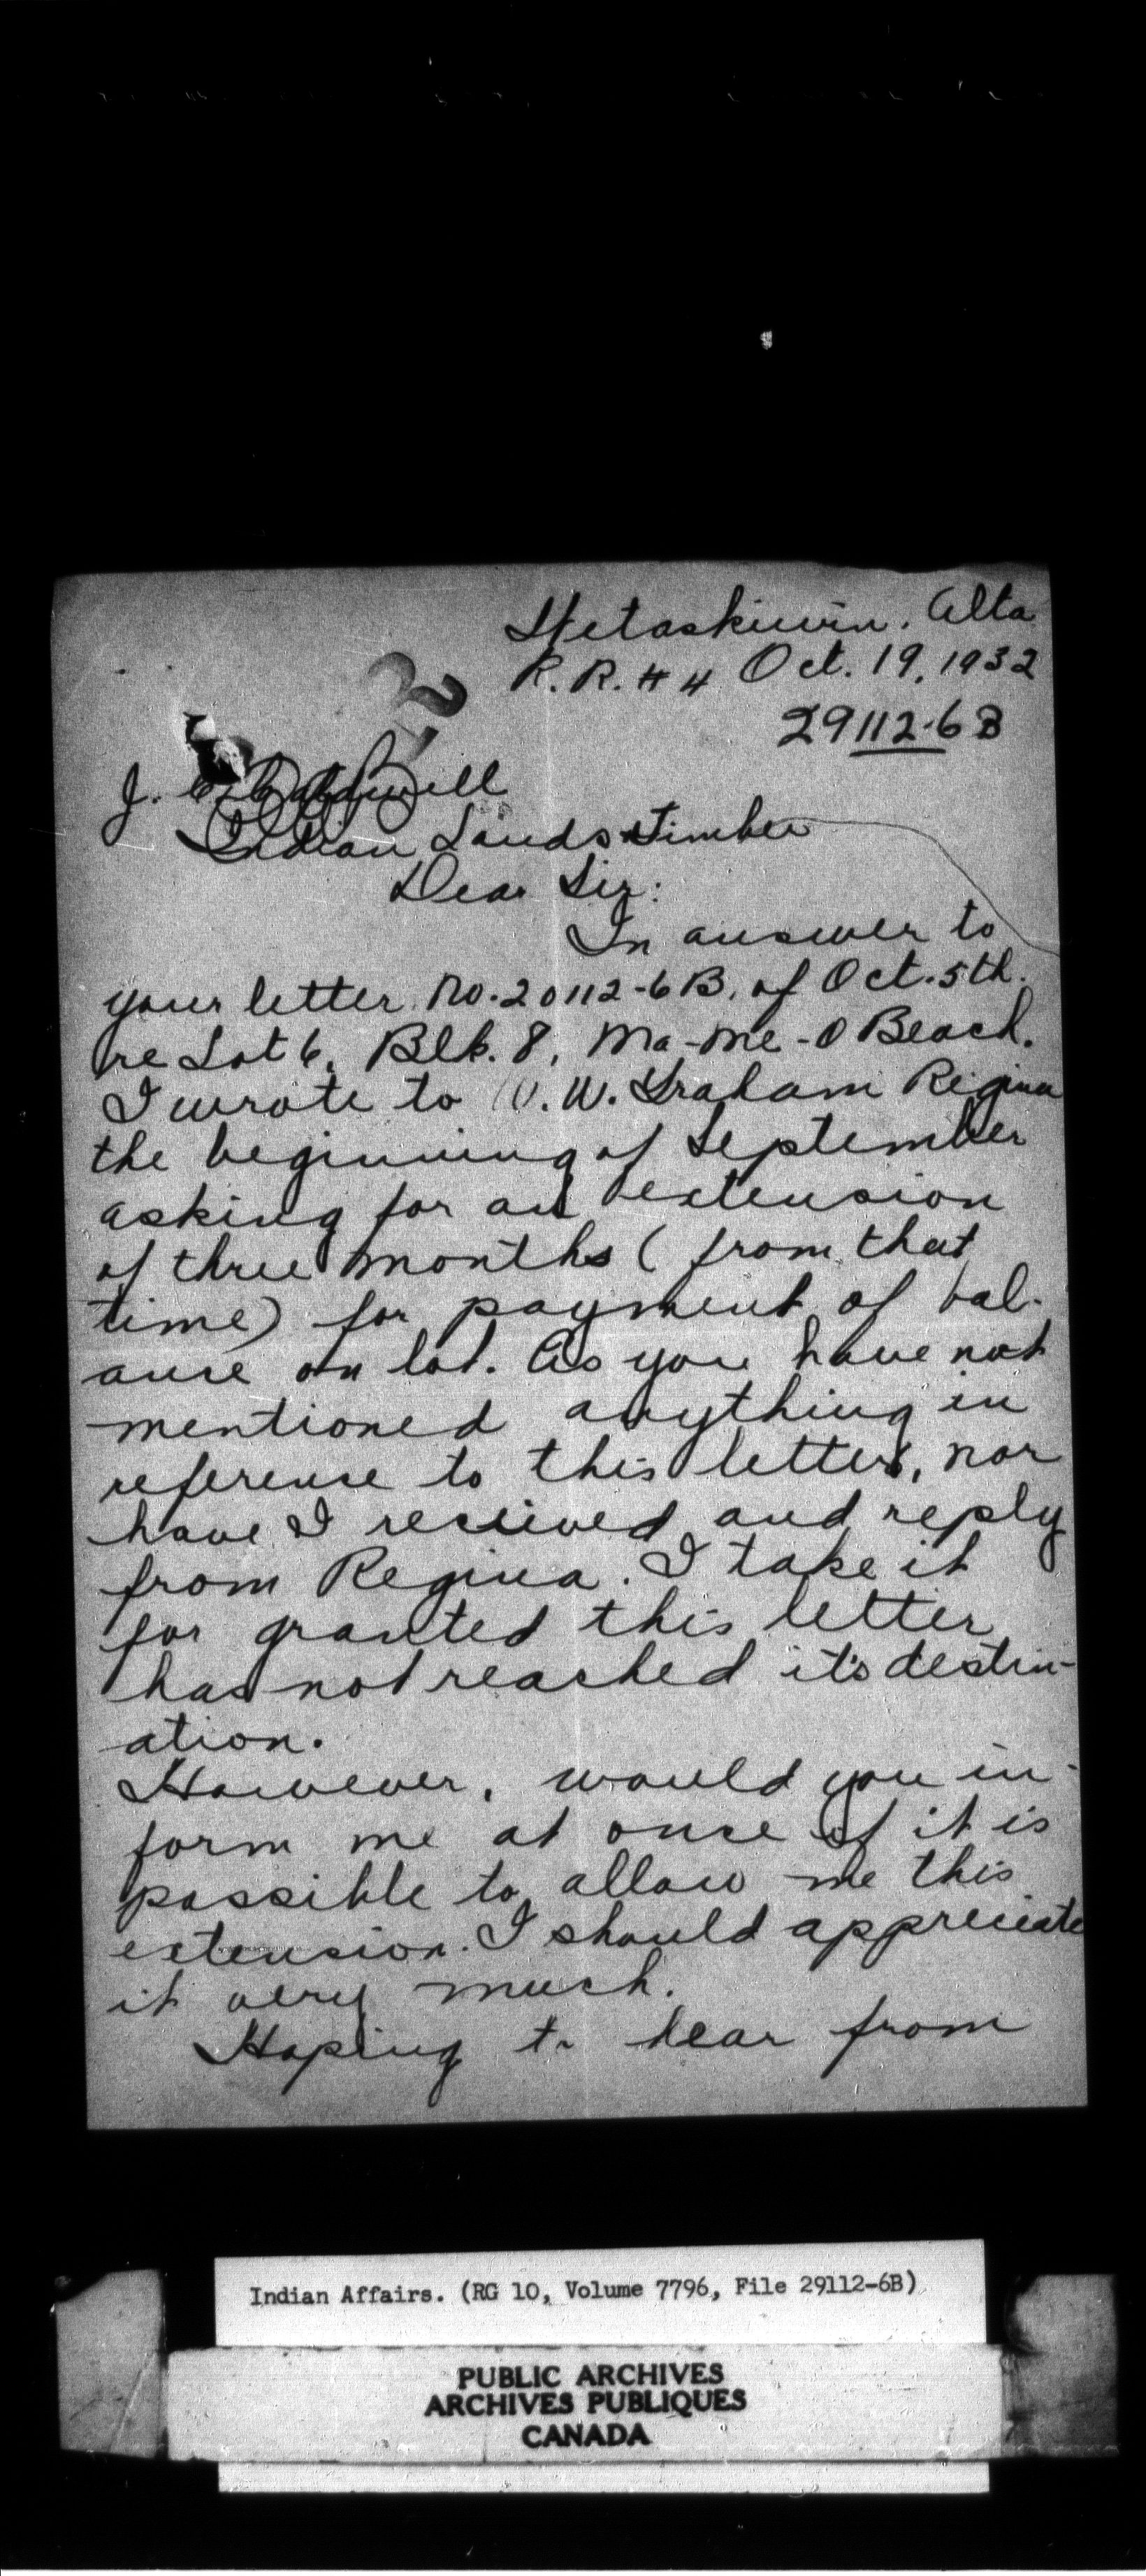 Wetaskiwin, Alta
R.R. # 4 Oct. 19, 1932
29112-6B
J. C. Caldwell
Indian Lands & Timber
Dear Sir:
In answer to
your letter No. 20112-6B, of Oct. 5th.
re Lot 6, Blk. 8, Ma-Me-O Beach.
I wrote to W. Graham Regina
the beginning of September
asking for an extension
of three months (from that
time) for payment of bal-
ance on lot. As you have not
mentioned anything in
reference to this letter, nor
have I received and reply
from Regina. I take it
for granted this letter
has not reached it's destin-
ation.
However, would you in-
form me at once if it is
possible to allow me this
extension. I should appreciate
it very much.
Hoping to hear from
Indian Affairs. (RG 10, Volume 7796, File 29112-6B)
PUBLIC ARCHIVES
ARCHIVES PUBLIQUES
CANADA